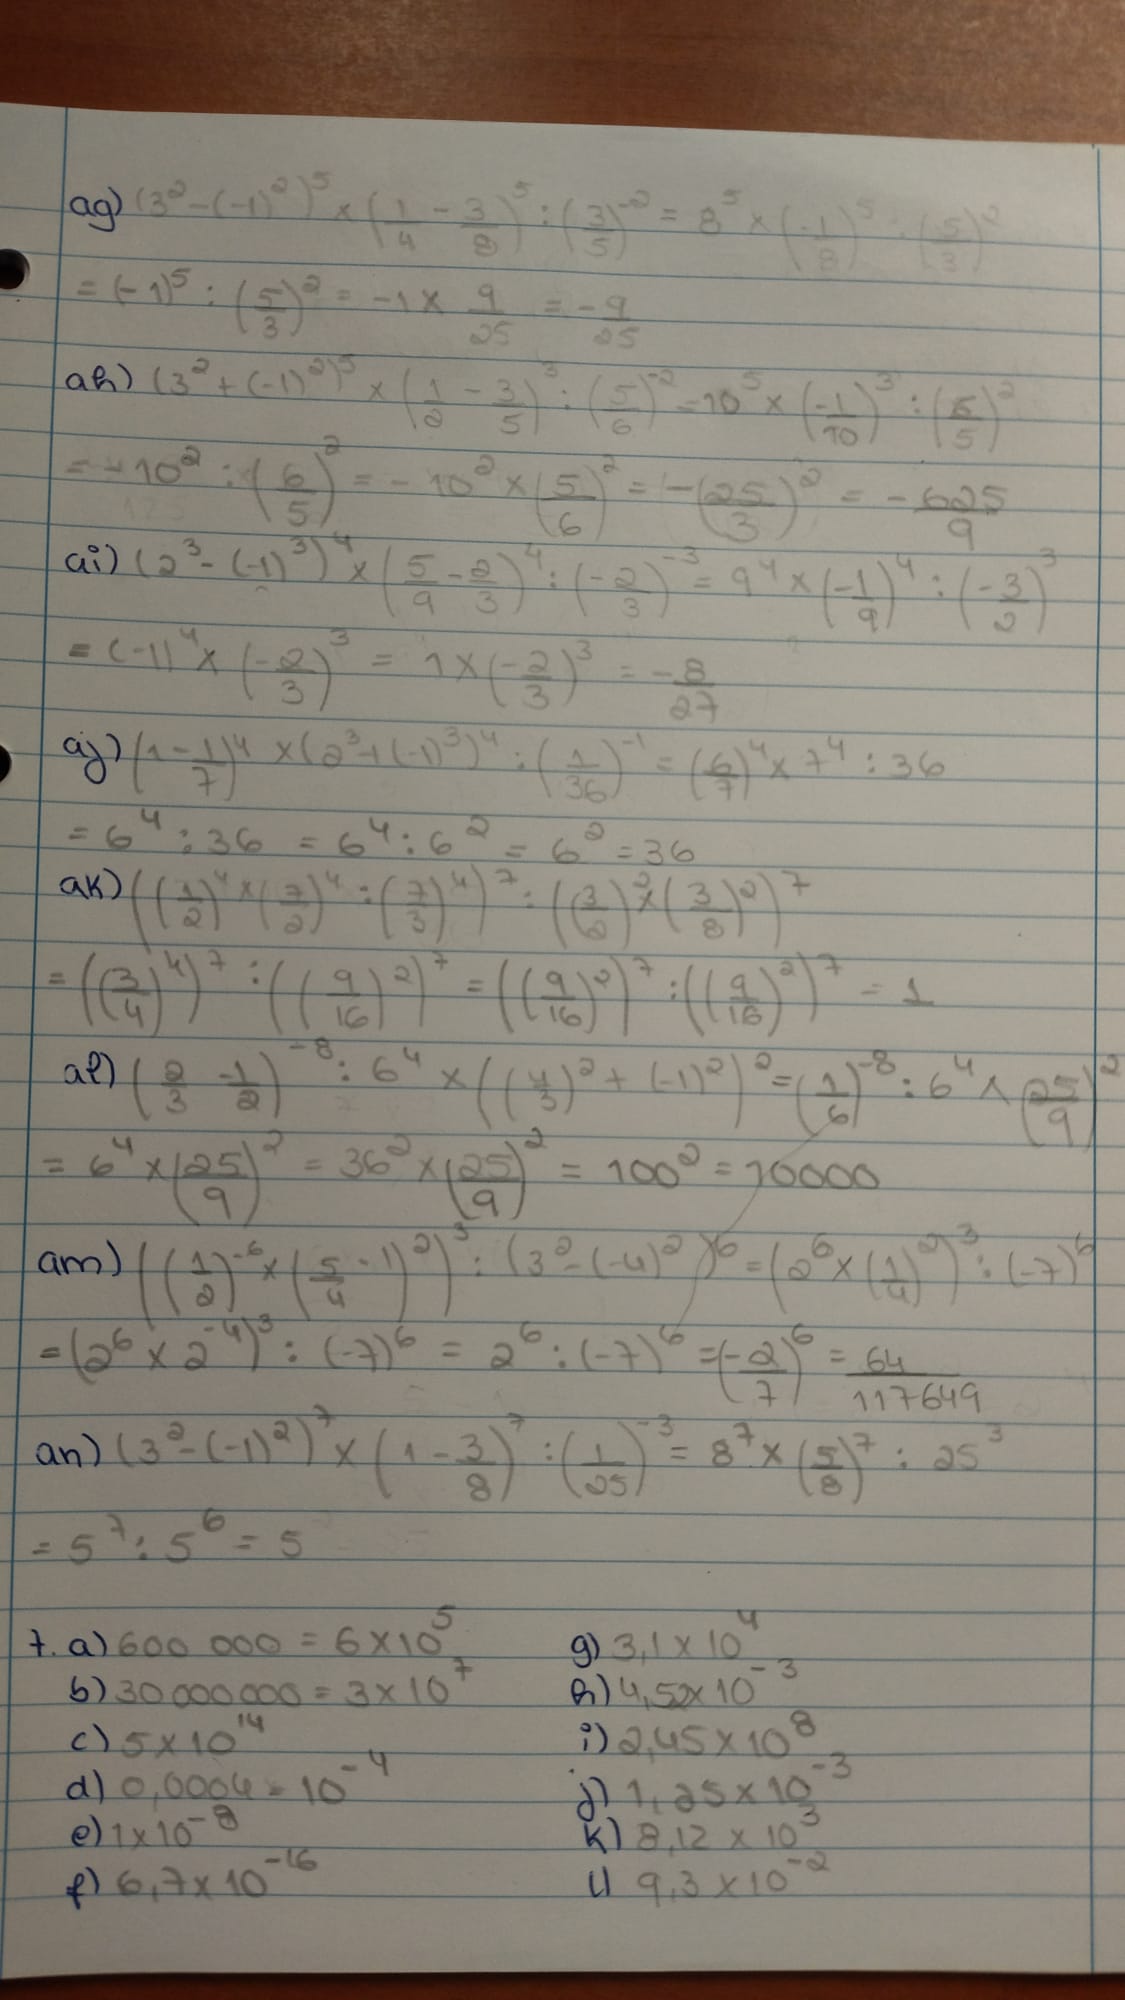 ag) (3² - (-1)²)⁵ × (1/4 - 3/8)⁵ : (3/5)⁻² = 8⁵ × (-1/8)⁵ : (5/3)²
= (-1)⁵ : (5/3)² = -1 × 9/25 = -9/25
ah) (3² + (-1)²)⁵ × (1/2 - 3/5)³ : (5/6)⁻² = 10⁵ × (-1/10)³ : (6/5)²
= -10² : (6/5)² = -10² × (5/6)² = -(25/3)² = -625/9
ai) (2³ - (-1)³)⁴ × (5/9 - 2/3)⁴ : (-2/3)⁻³ = 9⁴ × (-1/9)⁴ : (-3/2)³
= (-1)⁴ × (-2/3)³ = 1 × (-2/3)³ = -8/27
aj) (1 - 1/7)⁴ × (2³ + (-1)³)⁴ : (1/36)⁻¹ = (6/7)⁴ × 7⁴ : 36
= 6⁴ : 36 = 6⁴ : 6² = 6² = 36
ak) ((1/2)⁴ × (7/2)⁴ : (7/3)⁴)⁷ : ((3/2)² × (3/8)²)⁷
= ((3/4)⁴)⁷ : ((9/16)²)⁷ = ((9/16)²)⁷ : ((9/16)²)⁷ = 1
al) (2/3 - 1/2)⁻⁸ : 6⁴ × ((4/3)² + (-1)²)² = (1/6)⁻⁸ : 6⁴ × (25/9)²
= 6⁴ × (25/9)² = 36² × (25/9)² = 100² = 10000
am) ((1/2)⁻⁶ × (5/4 - 1)²)³ : (3² - (-4)²)⁶ = (2⁶ × (1/4)²)³ : (-7)⁶
= (2⁶ × 2⁻⁴)³ : (-7)⁶ = 2⁶ : (-7)⁶ = (-2/7)⁶ = 64/117649
an) (3² - (-1)²)⁷ × (1 - 3/8)⁷ : (1/25)⁻³ = 8⁷ × (5/8)⁷ : 25³
= 5⁷ : 5⁶ = 5
7. a) 600 000 = 6 × 10⁵
b) 30000000 = 3 × 10⁷
c) 5 × 10¹⁴
d) 0,0004 = 10⁻⁴
e) 1 × 10⁻⁸
f) 6,7 × 10⁻¹⁶
g) 3,1 × 10⁴
h) 4,52 × 10⁻³
i) 2,45 × 10⁸
j) 1,25 × 10⁻³
k) 8,12 × 10³
l) 9,3 × 10⁻²